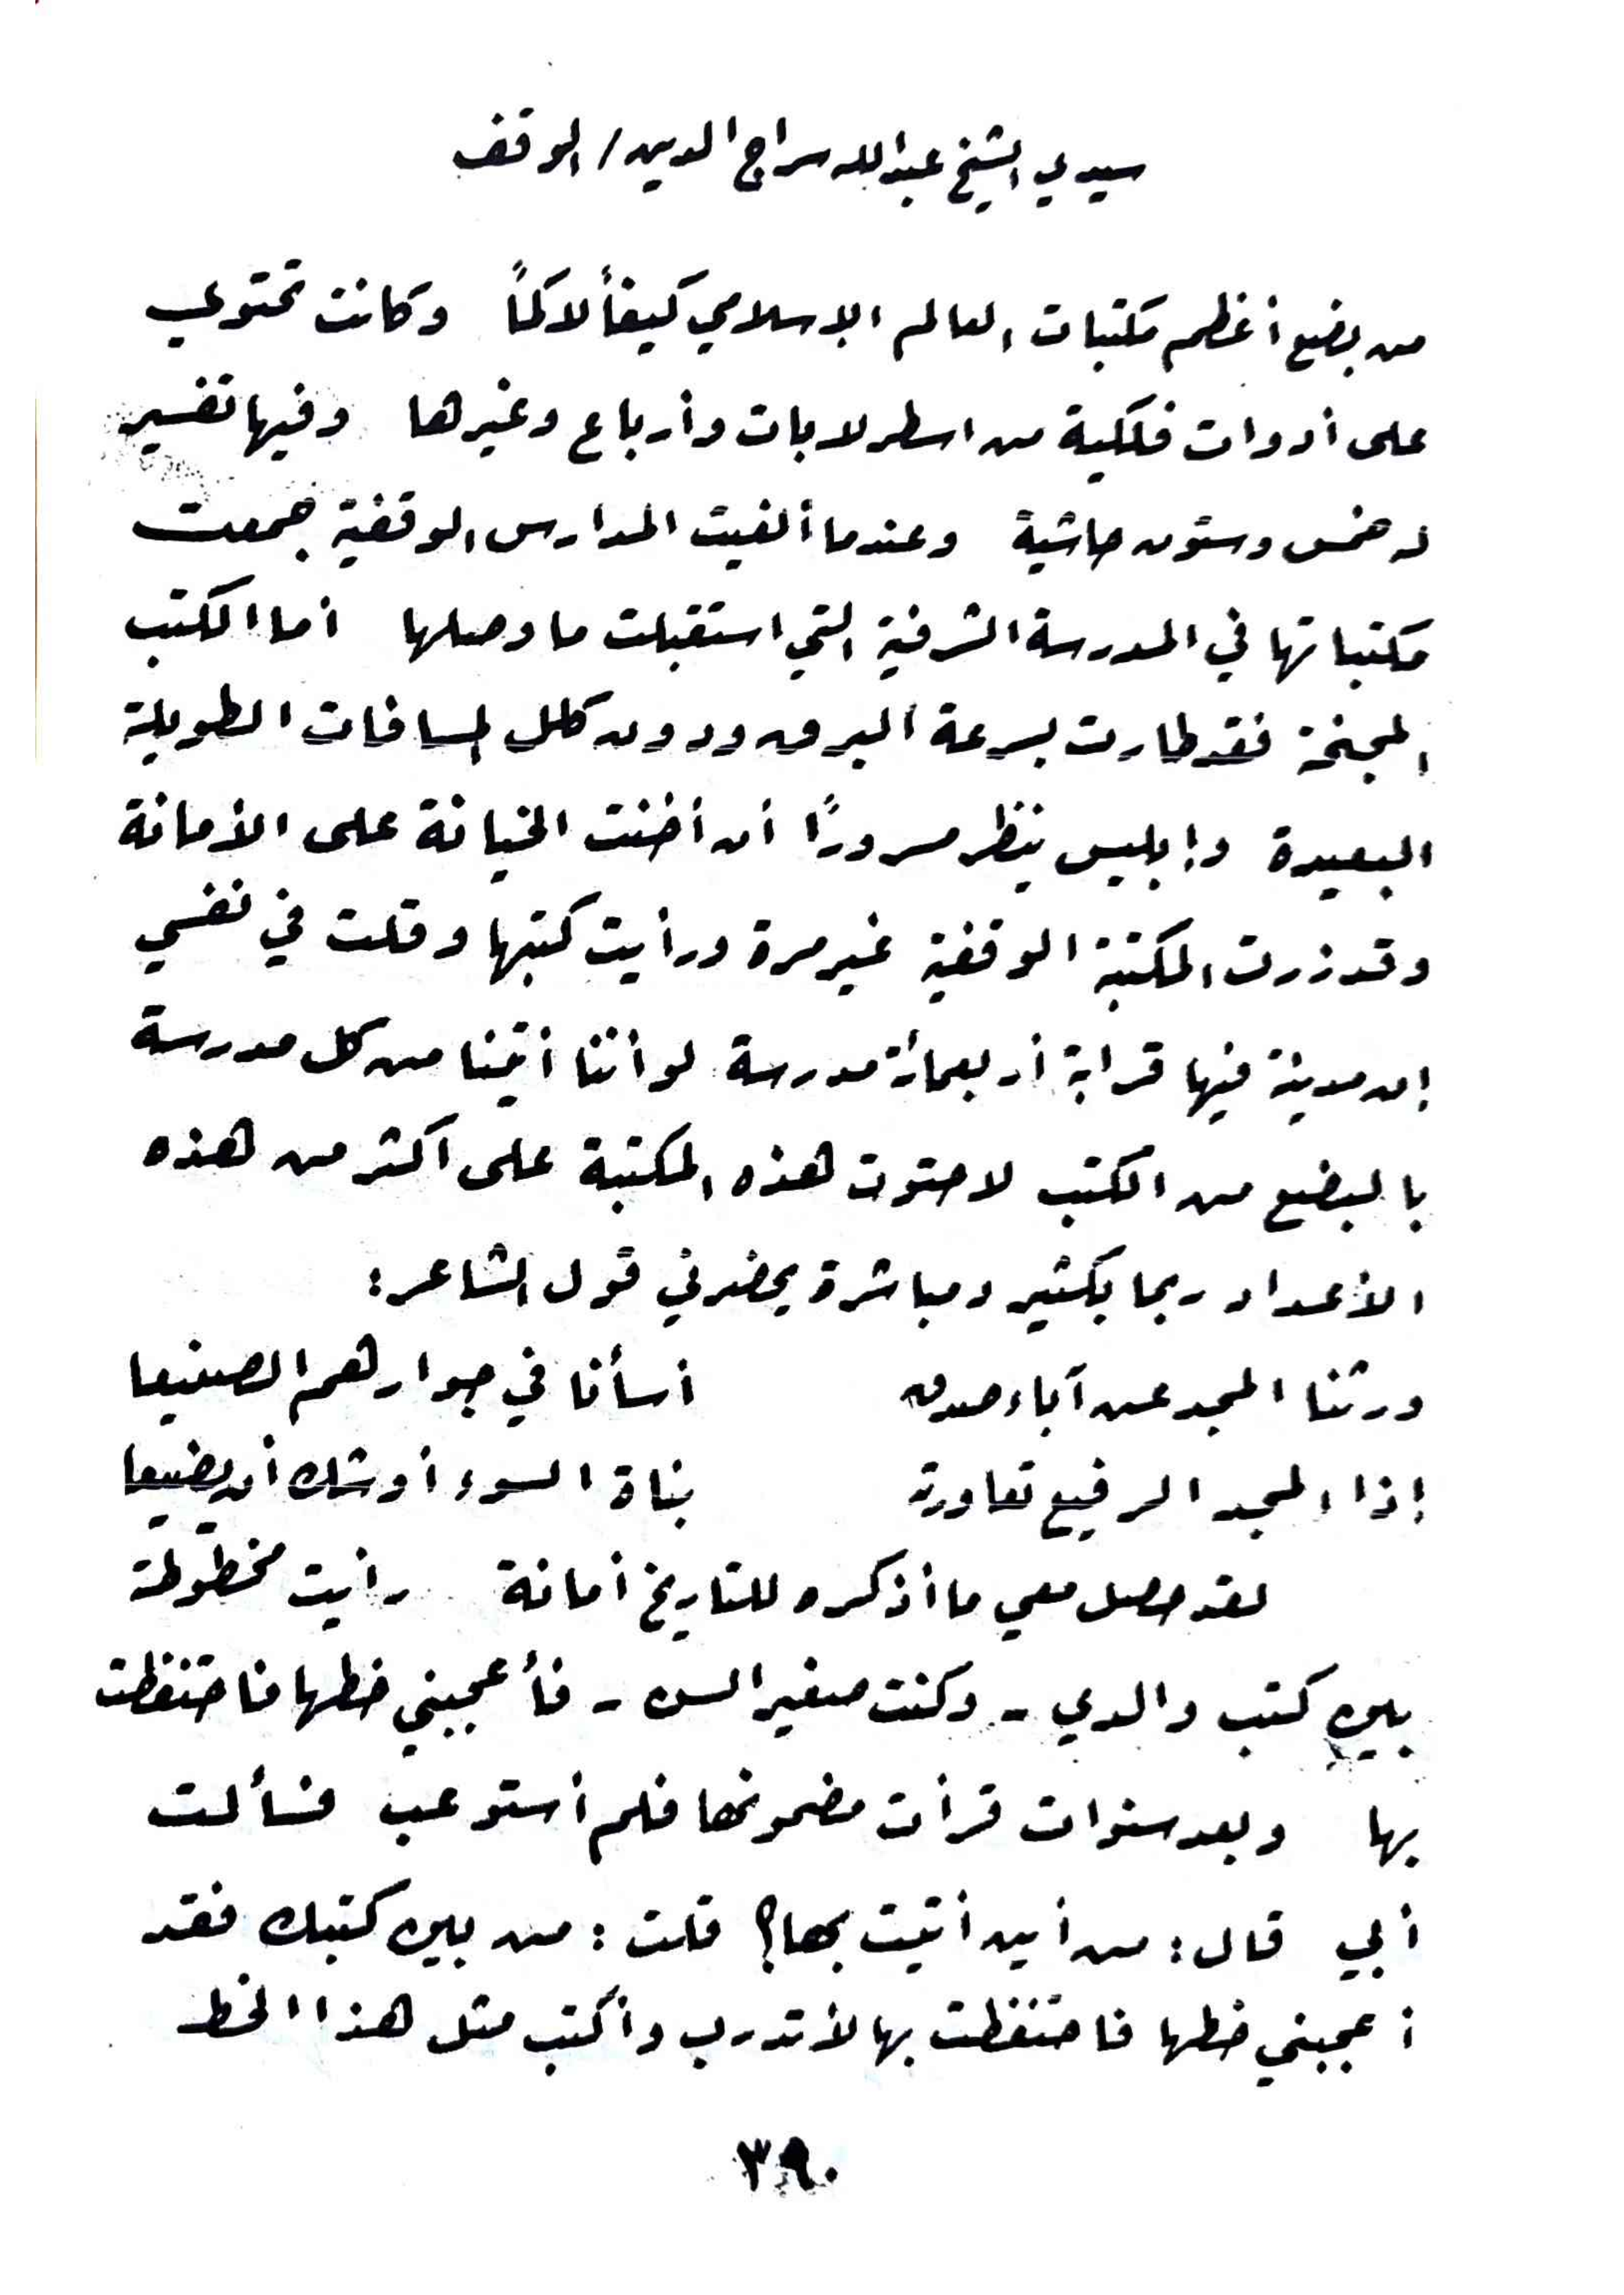 سيدي الشيخ عبد الله سراج الدين / الوقف
من بضع أعظم مكتبات العالم الإسلامي كيفاً لا كمّاً وكانت تحتوي
على أدوات فلكية من اسطرلابات وأرباع وغيرها وفيها تفسير
له خمس وستون حاشية وعندما ألغيت المدارس الوقفية جمعت
مكتباتها في المدرسة الشرفية التي استقبلت ما وصلها أما الكتب
المجنحة فقد طارت بسرعة البرق ودون كلل المسافات الطويلة
البعيدة وإبليس ينظر مسروراً أن أخنت الخيانة على الأمانة
وقد زرت المكتبة الوقفية غير مرة ورأيت كتبها وقلت في نفسي
إن مدينة فيها قرابة أربعمائة مدرسة لو أننا أتينا من كل مدرسة
بالبضع من الكتب لاحتوت هذه المكتبة على أكثر من هذه
الأعداد ربما بكثير ومباشرة يحضرني قول الشاعر :
ورثنا المجد عن آباء صدق أسأنا في جوارهم الصنيعا
إذا المجد الرفيع تعاورته بناة السوء أوشك أن يضيعا
لقد حصل معي ما أذكره للتاريخ أمانة رأيت مخطوطة
بين كتب والدي - وكنت صغير السن - فأعجبني خطها فاحتفظت
بها وبعد سنوات قرأت مضمونها فلم أستوعب فسألت
أبي قال : من أين أتيت بها؟ قلت : من بين كتبك فقد
أعجبني خطها فاحتفظت بها لأتدرب وأكتب مثل هذا الخط
٣٩٠